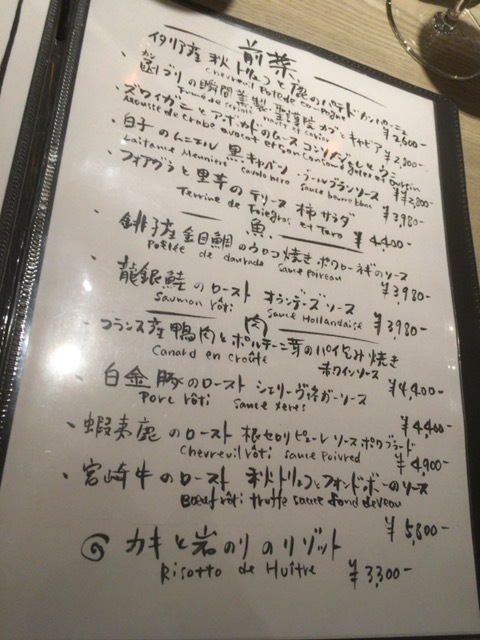 前菜
・イタリア産 秋トリュフと鹿のパテドカンパーニュ
Chevreuil Pate de campagne ¥2,600-
・函ブリの瞬間薫製 聖護院カブとキャビア
Fumé de navet et caviar ¥2,800-
・ズワイガニとアボカドのムース コンソメジュレとウニ
Mousse de crabe avocat et son Consommé gelée et oursin ¥3,800-
・白子のムニエル 黒キャベツ ブールブランソース
Laitance Meunière cavolo nero sauce beurre blanc ¥3,980-
・フォアグラと里芋のテリーヌ 柿サラダ
Terrine de Foiegras et Taro ¥4,400-
魚
・銚子産金目鯛のウロコ焼き ポワローネギのソース
Poêlée de daurade sauce poireau ¥3,980-
・龍銀鮭のロースト オランデーズソース
Saumon rôti sauce Hollandaise ¥3,980-
肉
・フランス産鴨肉とポルチーニ茸のパイ包み焼き
Canard en croûte 赤ワインソース ¥4,400-
・白金豚のロースト シェリーヴィネガーソース
Porc rôti sauce xeres ¥4,400-
・蝦夷鹿のロースト 根セロリピューレ ソースポワブラード
Chevreuil rôti sauce Poivred ¥4,900-
・宮崎牛のロースト 秋トリュフとフォンドボーのソース
Bœuf rôti truffe sauce fond de veau ¥5,800-
◎ カキと岩のりのリゾット
Risotto de Huître ¥3,300-